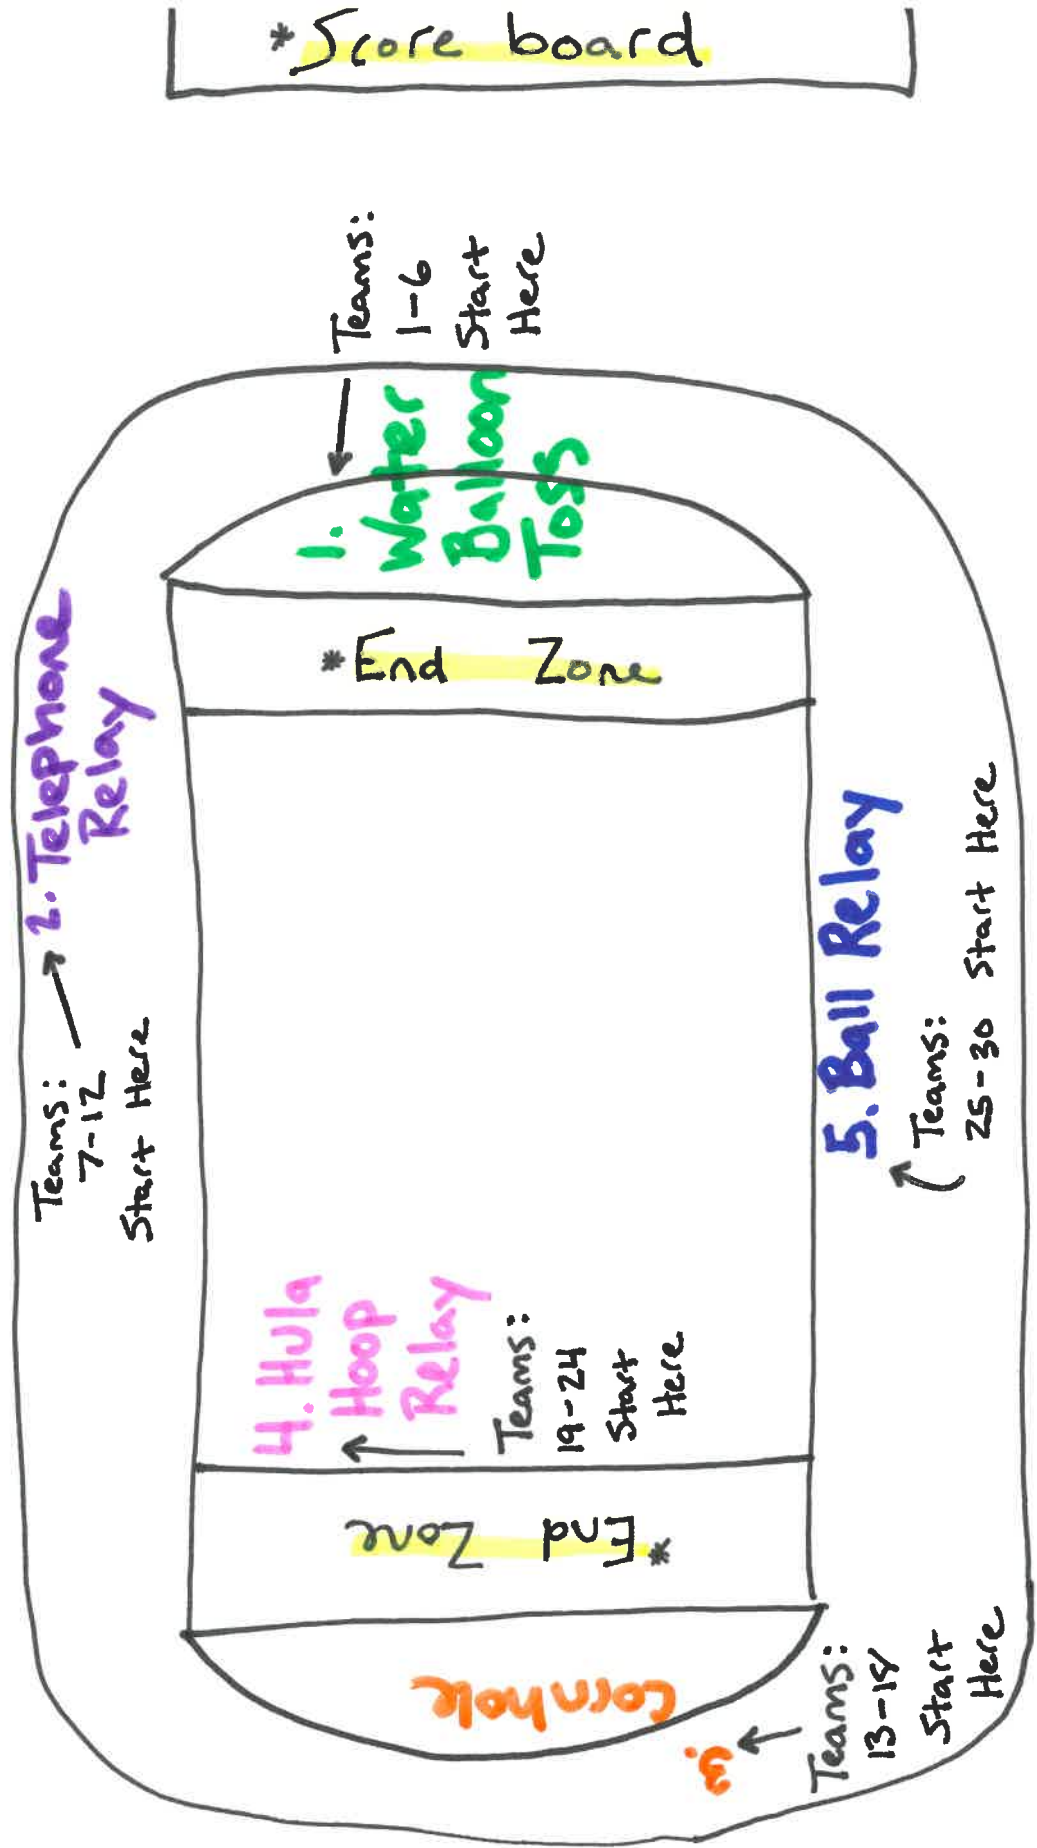 *Score board
Teams:
1-6
Start
Here
1.
Water
Balloon
Toss
*End Zone
2. Telephone
Relay
Teams:
7-12
Start Here
5. Ball Relay
Teams:
25-30 Start Here
4. Hula
Hoop
Relay
Teams:
19-24
Start
Here
*End Zone
3. Cornhole
Teams:
13-18
Start
Here